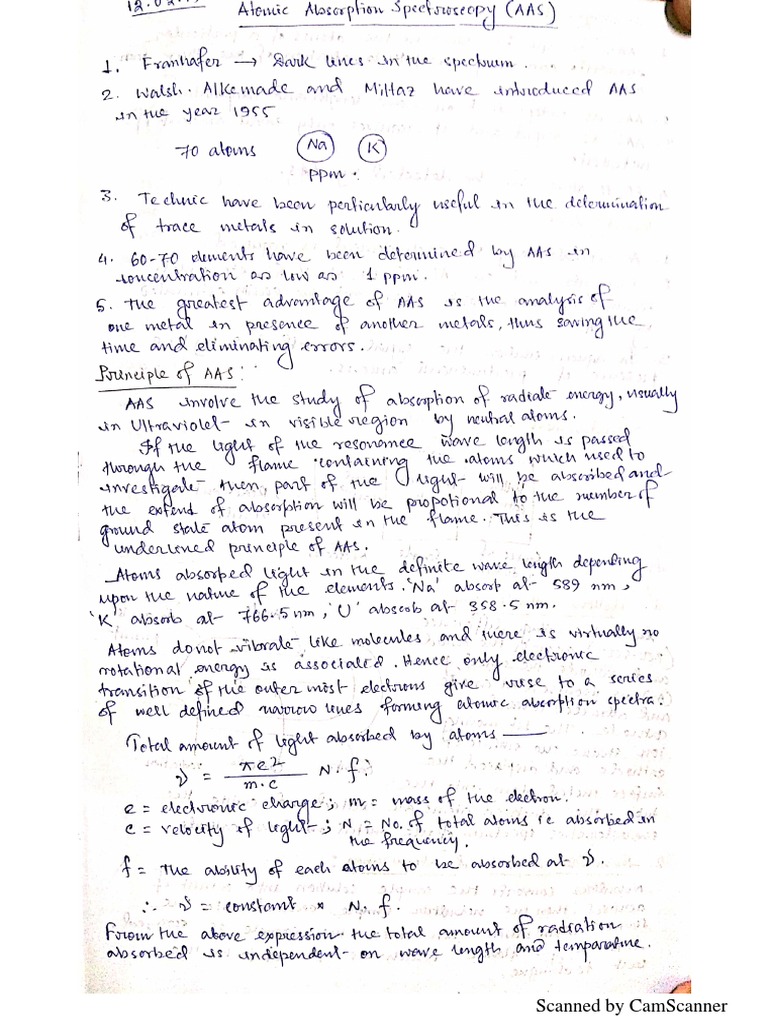 12.02.
Atomic Absorption Spectroscopy (AAS)
1. Franhafer → Dark lines in the spectrum.
2. Walsh. Alkemade and Miltaz have introduced AAS
in the year 1955
70 atoms Na K
ppm.
3. Technic have been perticularly useful in the determination
of trace metals in solution.
4. 60-70 elements have been determined by AAS in
concentration as low as 1 ppm.
5. The greatest advantage of AAS is the analysis of
one metal in presence of another metals, thus saving the
time and eliminating errors.
Principle of AAS:
AAS involve the study of absorption of radiate energy, usually
in Ultraviolet - in visible region by neutral atoms.
If the light of the resonance wave length is passed
through the flame containing the atoms which used to
investigate then, part of the light will be abscribed and
the extend of absorption will be propotional to the number of
ground state atom present in the flame. This is the
underlined principle of AAS.
Atoms absorbed light in the definite wave length depending
upon the nature of the elements. 'Na' absorb at 589 nm,
'K' absorb at 766.5 nm, 'U' abscob at 358.5 nm.
Atoms do not vibrate like molecules and there is virtually no
rotational energy is associated. Hence only electronic
transition of the outer most electrons give rise to a series
of well defined narrow lines forming atomic absorption spectra.
Total amount of light absorbed by atoms —
ν = πe2 / m.c N.f.
e = electronic charge; m = mass of the electron.
c = velocity of light; N = No. of total atoms ie absorbed in
the frequency.
f = The ability of each atoms to be absorbed at ν.
∴ ν = constant × N. f.
From the above expression the total amount of radiation
absorbed is independent on wave length and temparature.
Scanned by CamScanner